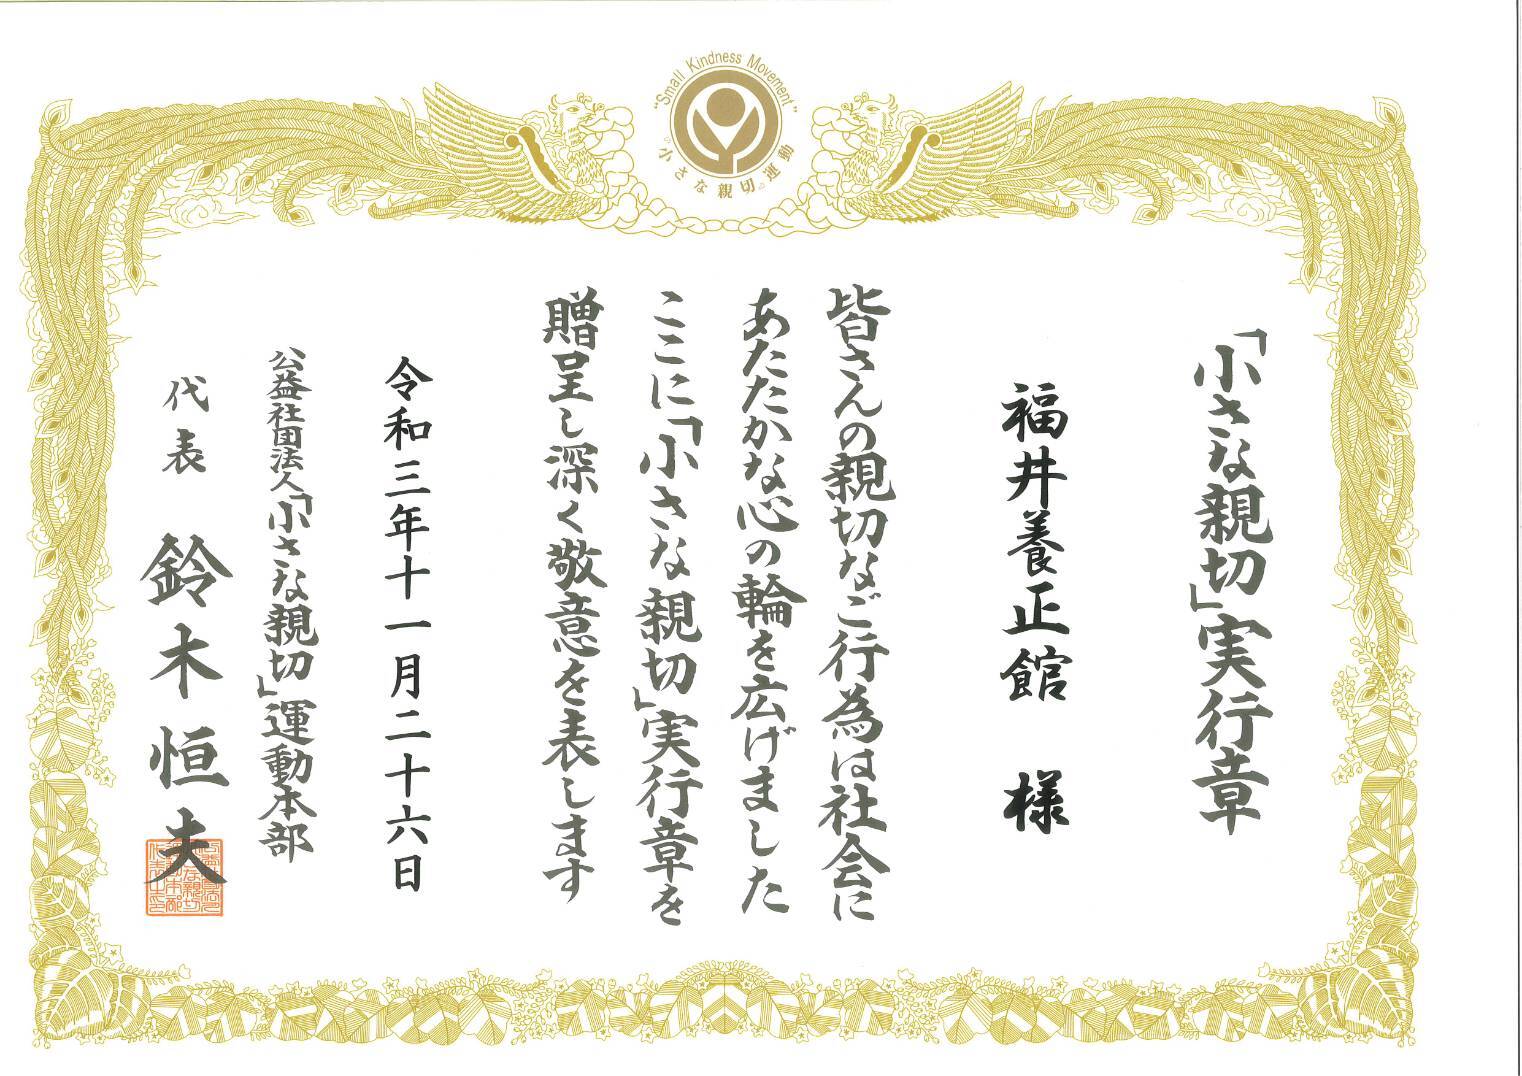 "Small Kindness Movement"
『小さな親切』運動
「小さな親切」実行章
福井養正館 様
皆さんの親切なご行為は社会に
あたたかな心の輪を広げました
ここに「小さな親切」実行章を
贈呈し深く敬意を表します
令和三年十一月二十六日
公益社団法人「小さな親切」運動本部
代表 鈴木恒夫